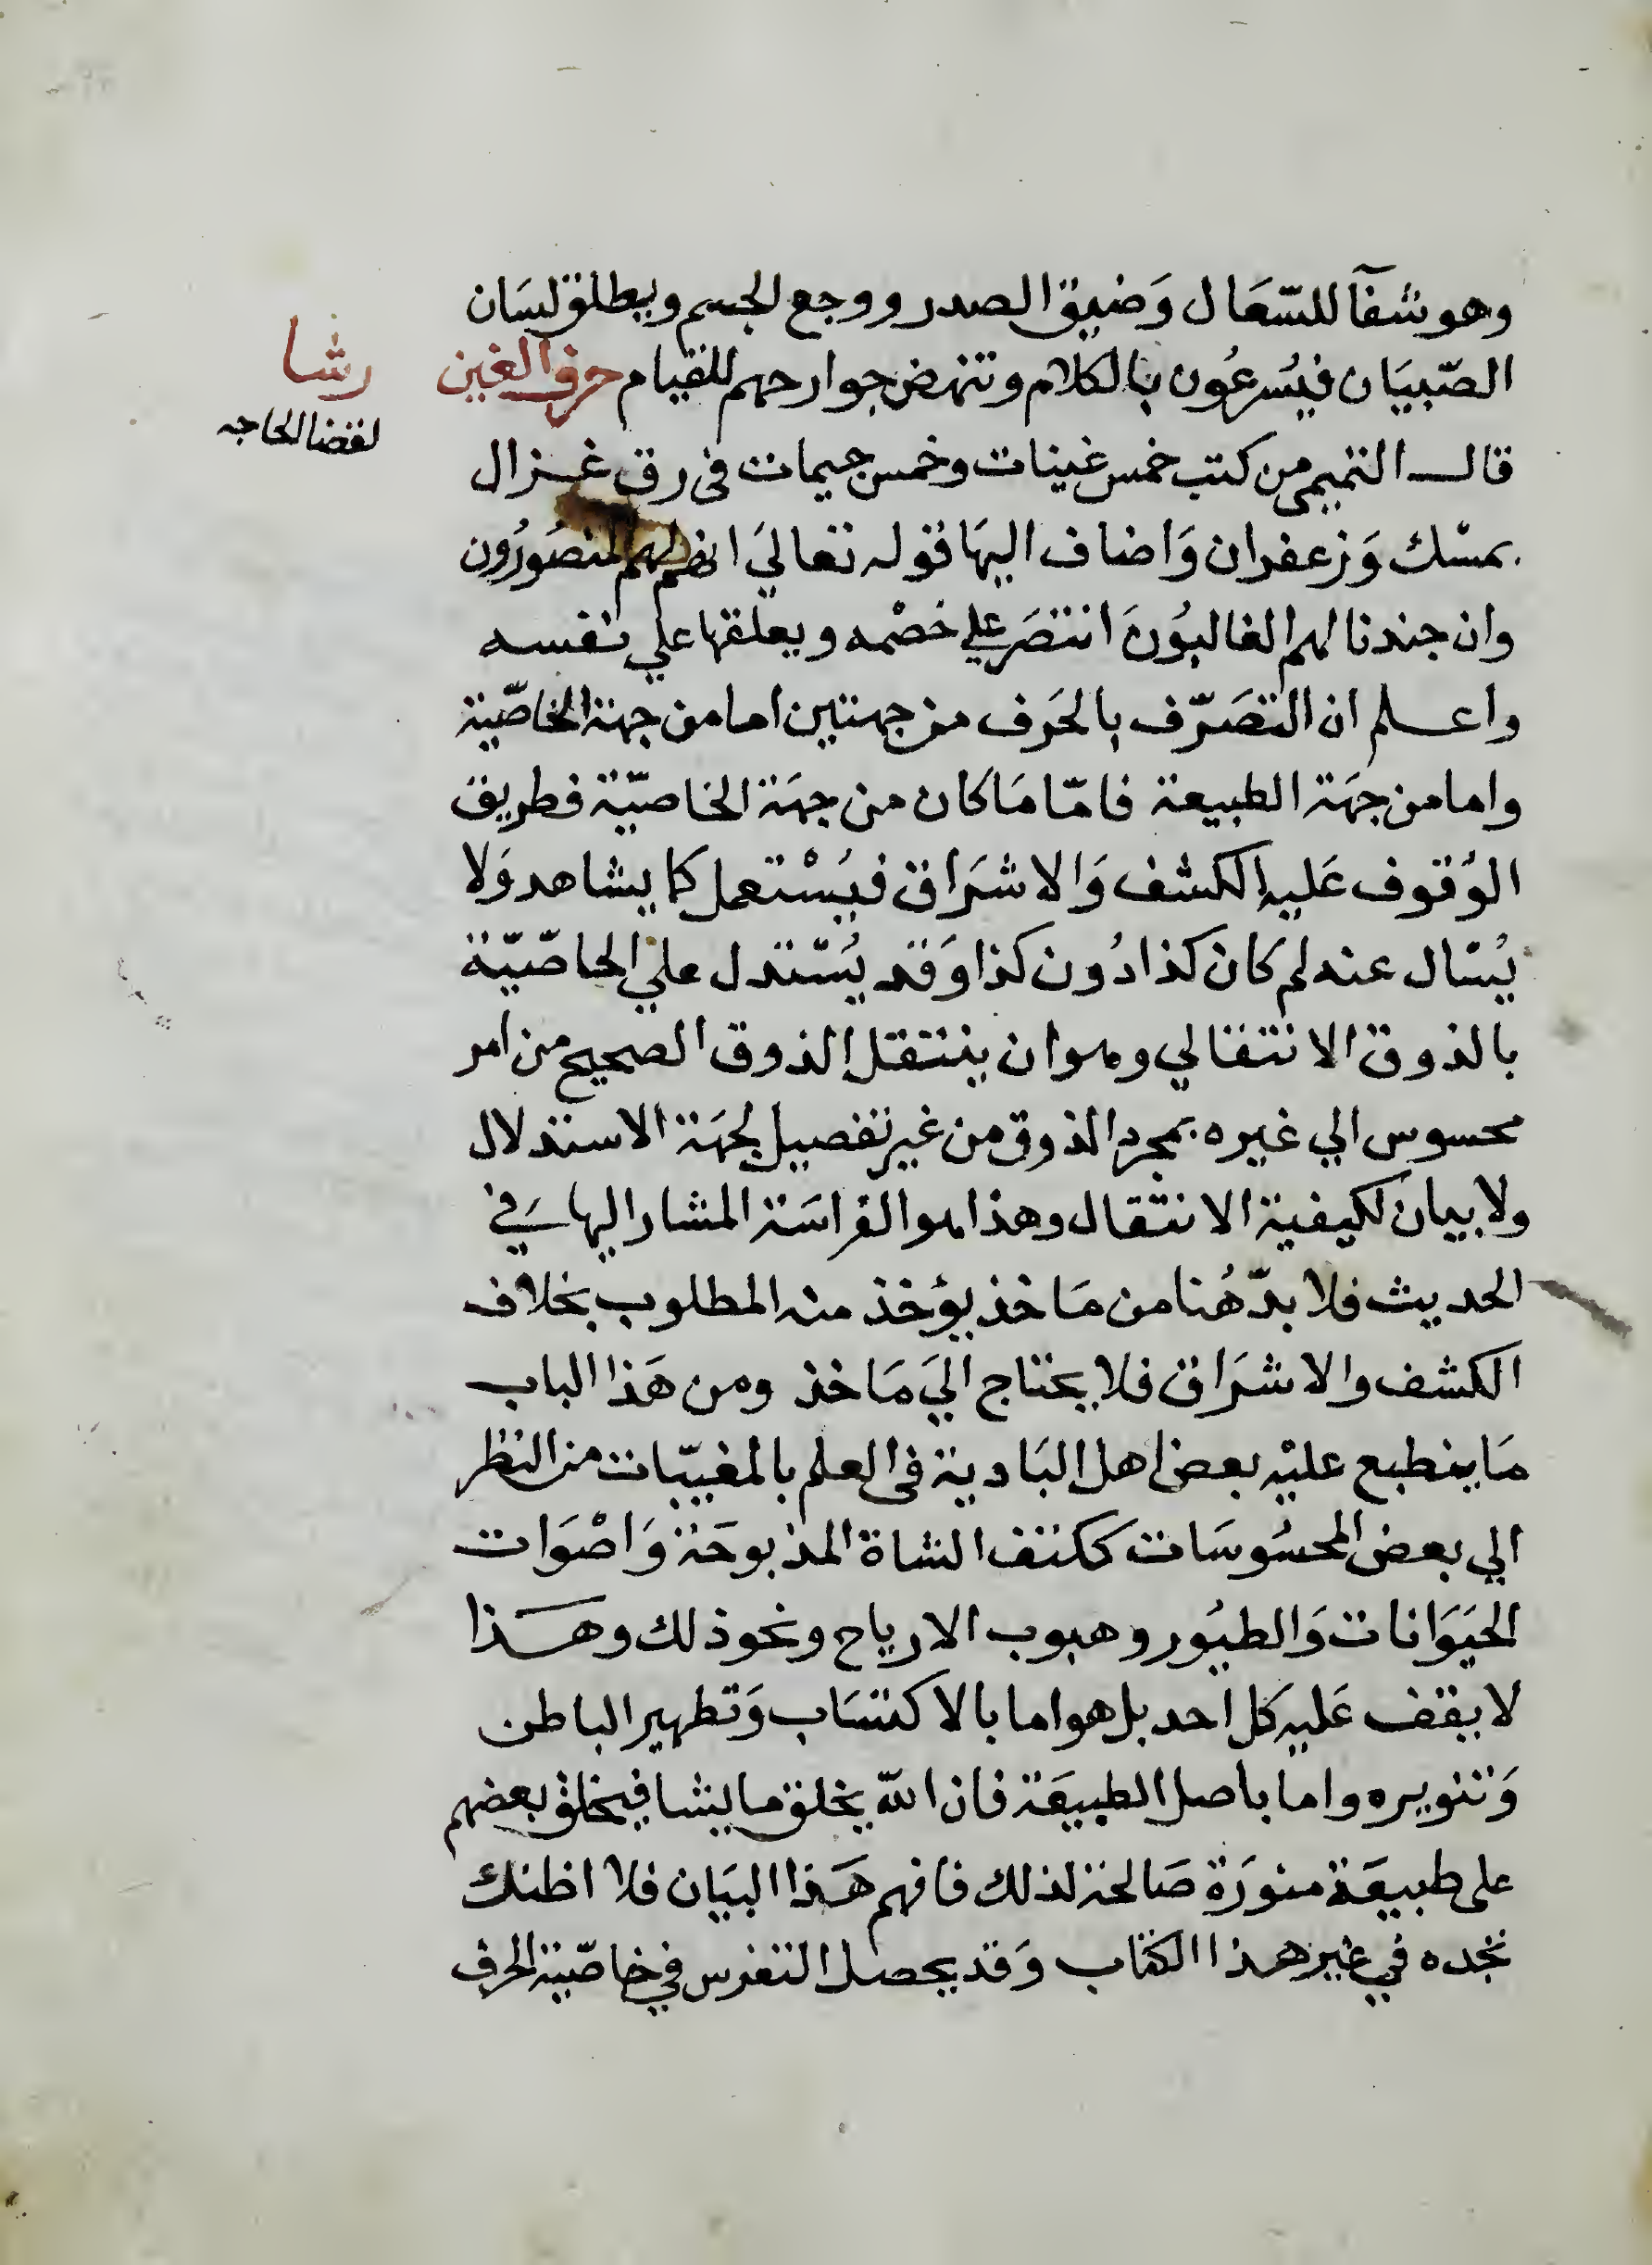 وهو شفآ للسّعَال وَضيق الصدر ووجع الجسم ويطلق لسَان
الصّبيَان فيُسرعُون بالكلام وتنهض جوارحهم للقيام حرف الغين
رشا
لقضا الحاجه
قال التميمي من كتب خمس غينات وخمس جيمات في رق غزال
بمسْك وَزعفران وَاضاف اليهَا قوله تعاليَ انهم لهم المنصُورُون
وان جندنا لهم الغالبُونَ انتصَر علي خصْمه ويعلقها علي نفسه
واعلم ان التصَرّف بالحَرف من جهتين اما من جهة الخاصّية
واما من جهَة الطبيعة فامّا مَا كان من جهَة الخاصيّة فطريق
الوُقوف عَليه الكشف وَالاشرَاق فيُسْتعمل كما يشاهد وَلا
يُسْال عنه لم كان كذا دُون كذا وَقد يُسْتدل علي الخاصّيّة
بالذوق الانتقالي وهوان ينتقل الذوق الصحيح من امر
محسوس الي غيره بمجرد الذوق من غير تفصيل لجهَة الاستدلال
ولا بيان لكيفية الانتقال وهذا هو الفراسَة المشار اليها في
الحديث فلا بدّ هُنا من مَاخذ يؤخذ منه المطلوب بخلاف
الكشف والاشرَاق فلا يحتاج اليَ مَاخذ ومن هَذا الباب
مَا ينطبع عليْه بعض اهل البَادية في العلم بالمغيبّات من النظر
الي بعض المحسُوسَات ككتف الشاة المذبوحَة وَاصْوَات
الحيَوَانات وَالطيُور وهبوب الارياح ونحو ذلك وهَذا
لا يقف عَليه كل احد بل هو اما بالاكتسَاب وَتطهير الباطن
وَتنويره واما باصل الطبيعَة فان الله يخلق ما يشا فيخلق بعضهم
على طبيعَة منوَرَة صَالحة لذلك فافهم هَذا البيَان فلا اظنك
تجده في غير هذا الكتاب وَقد يحصل التفرس في خاصّية الحرف